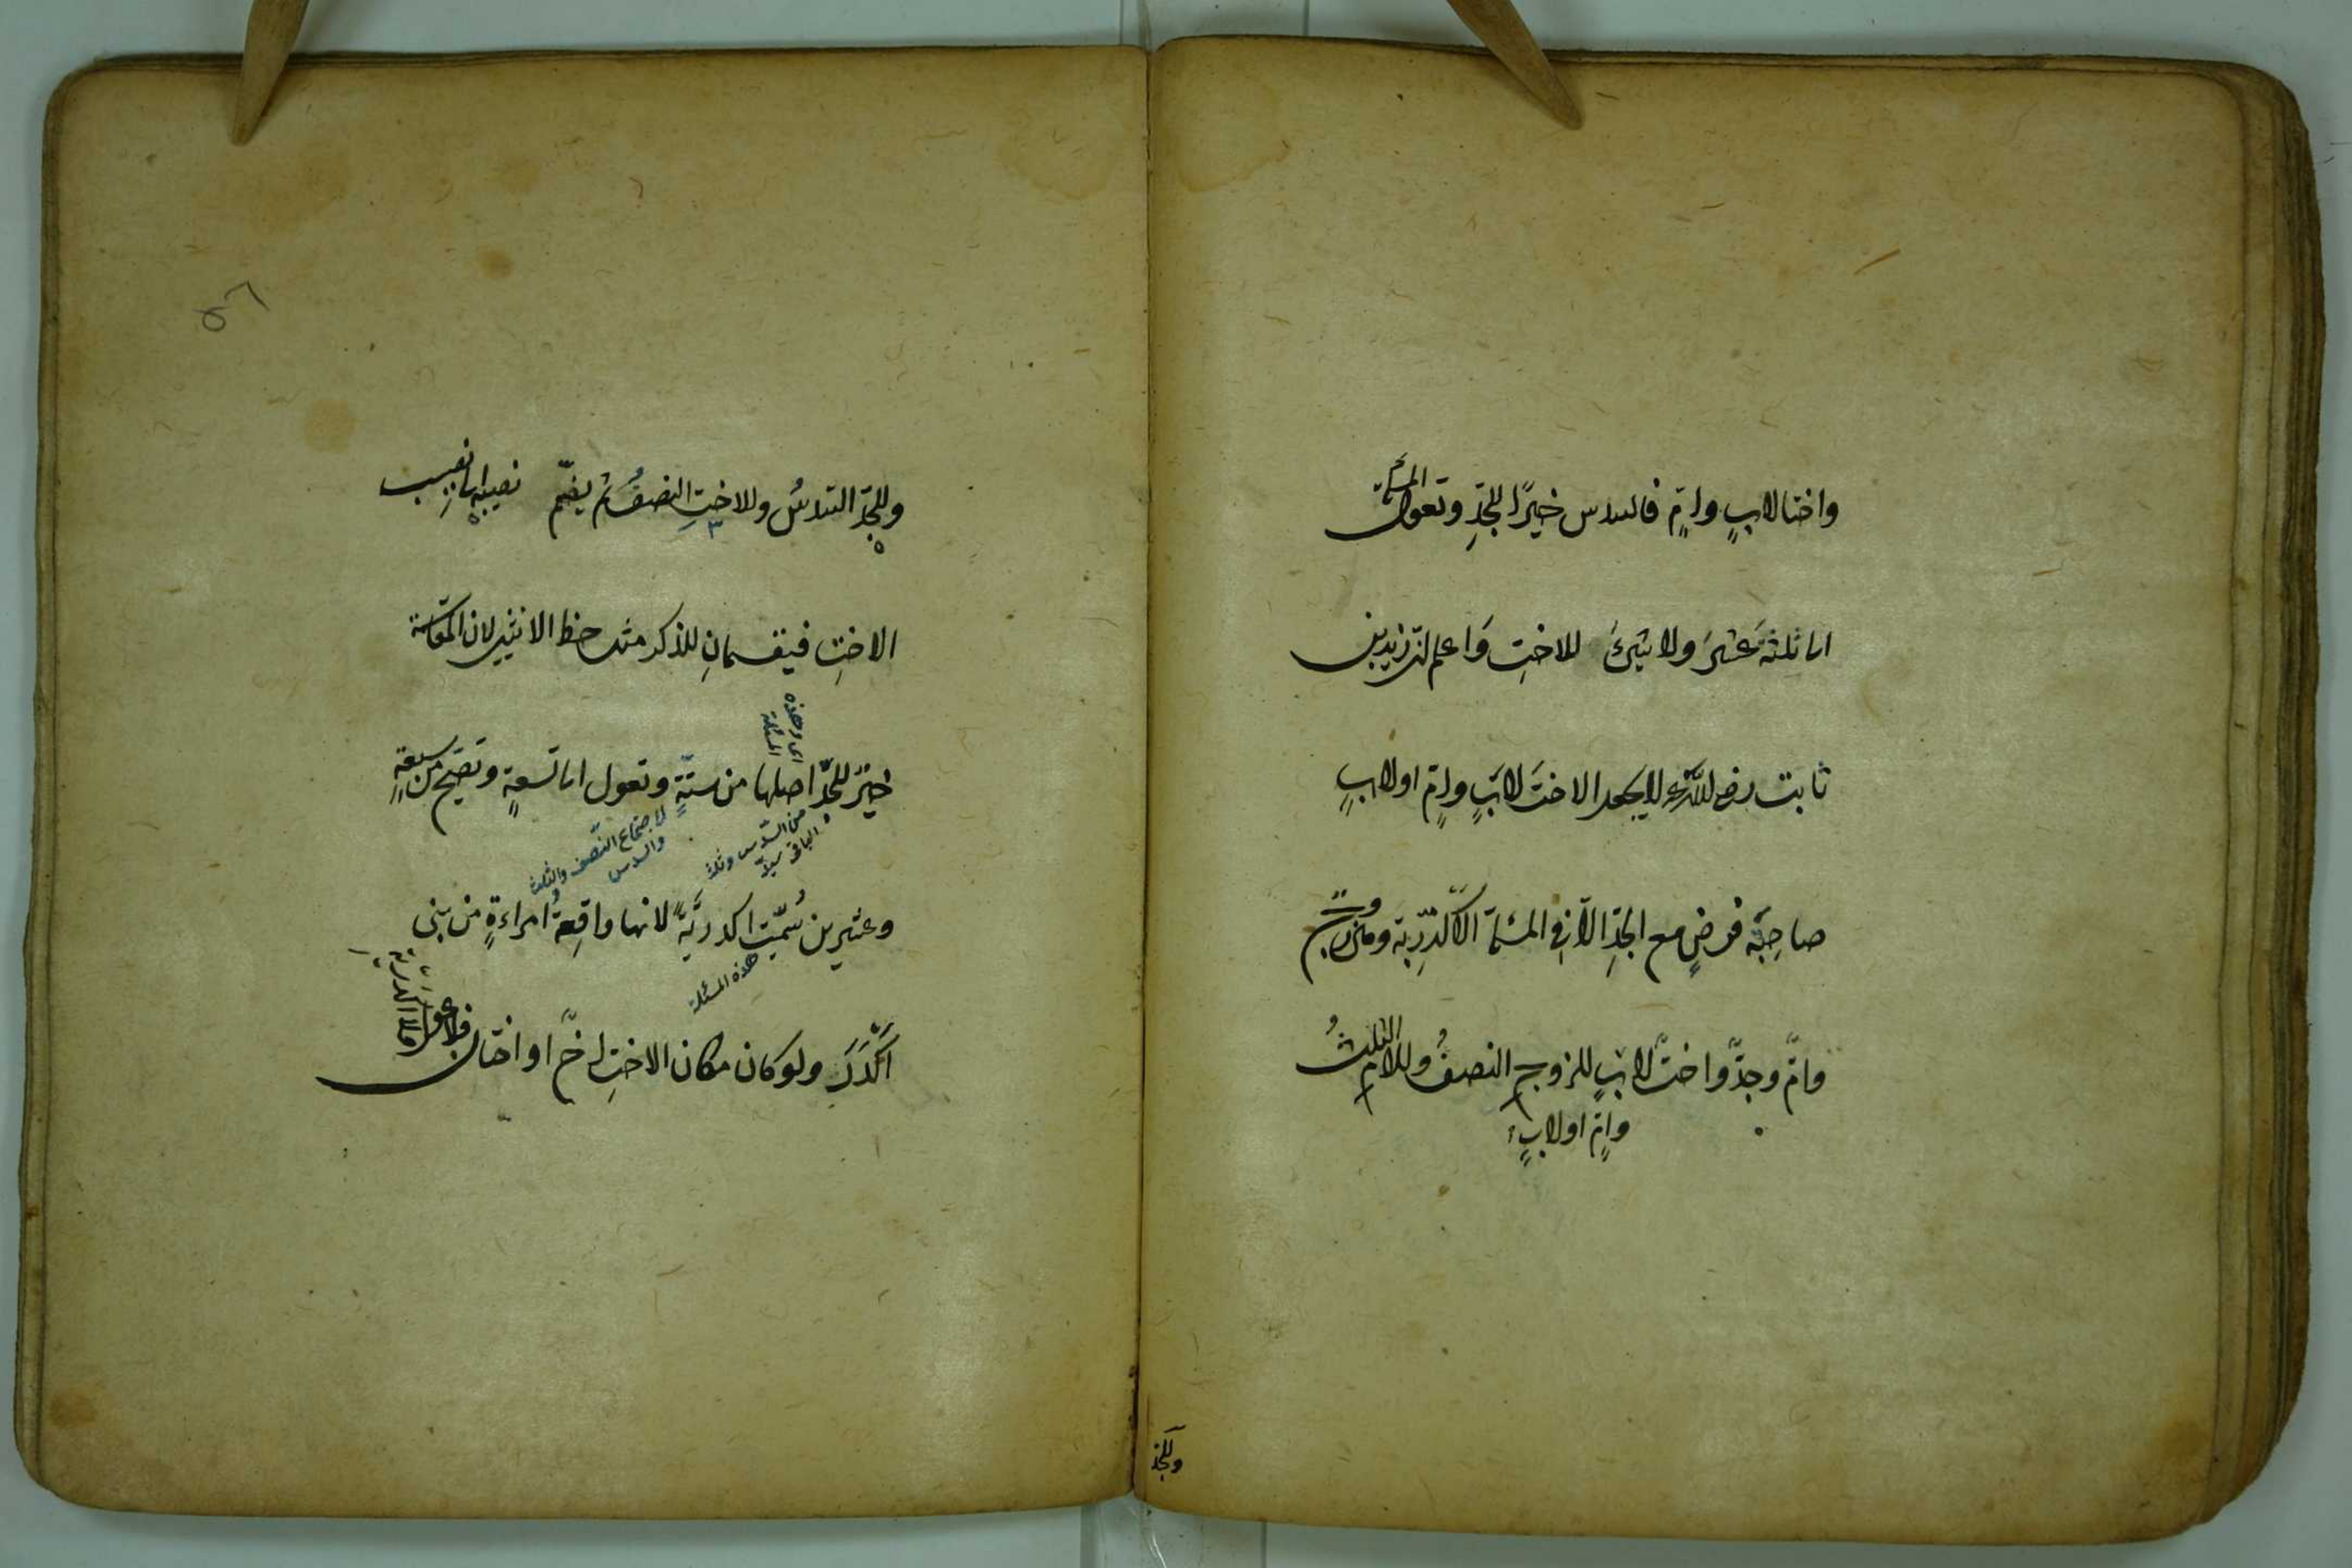 واختا لابٍ وامٍّ فالسدس خيرًا للجدِّ وتعول المسئلة
الى ثلثةَ عشرَ ولا شئَ للاختِ وَاعلم ان زيد بن
ثابت رضى الله عنه لا يجعل الاختَ لابٍ وامٍّ او لابٍ
صاحِبَة فرضٍ مع الجدِّ الّا فى المسئلة الاكدريّة وهى زوج
وامٌّ وجدٌّ واختٌ لابٍ للزوجِ النصفُ وللامِّ الثلثُ
وامٍّ او لابٍ
وللجد
٥٦
وللجدّ السدسُ وللاختِ النصفُ ثم يضمّ نصيبه الى نصيب
٣
الاختِ فيقسمانِ للذكر مثل حظ الانثيين لان المقاسمة
اى وهذه
المسئلة
خيرٌ للجدِّ اصلها من ستّةٍ وتعول الى تسعةٍ وتصحّ من سبعةٍ
من السّدس وثلث
الباقى
لاجتماع النّصف والثلث
والسدس
وعشرين سُمّيت اكدريّةً لانها واقِعةُ امراءةٍ من بنى
هذه المسئلة
اَكْدَرَ ولو كان مكان الاختِ اخٌ او اختان فلا عول
ولا اكدريّة